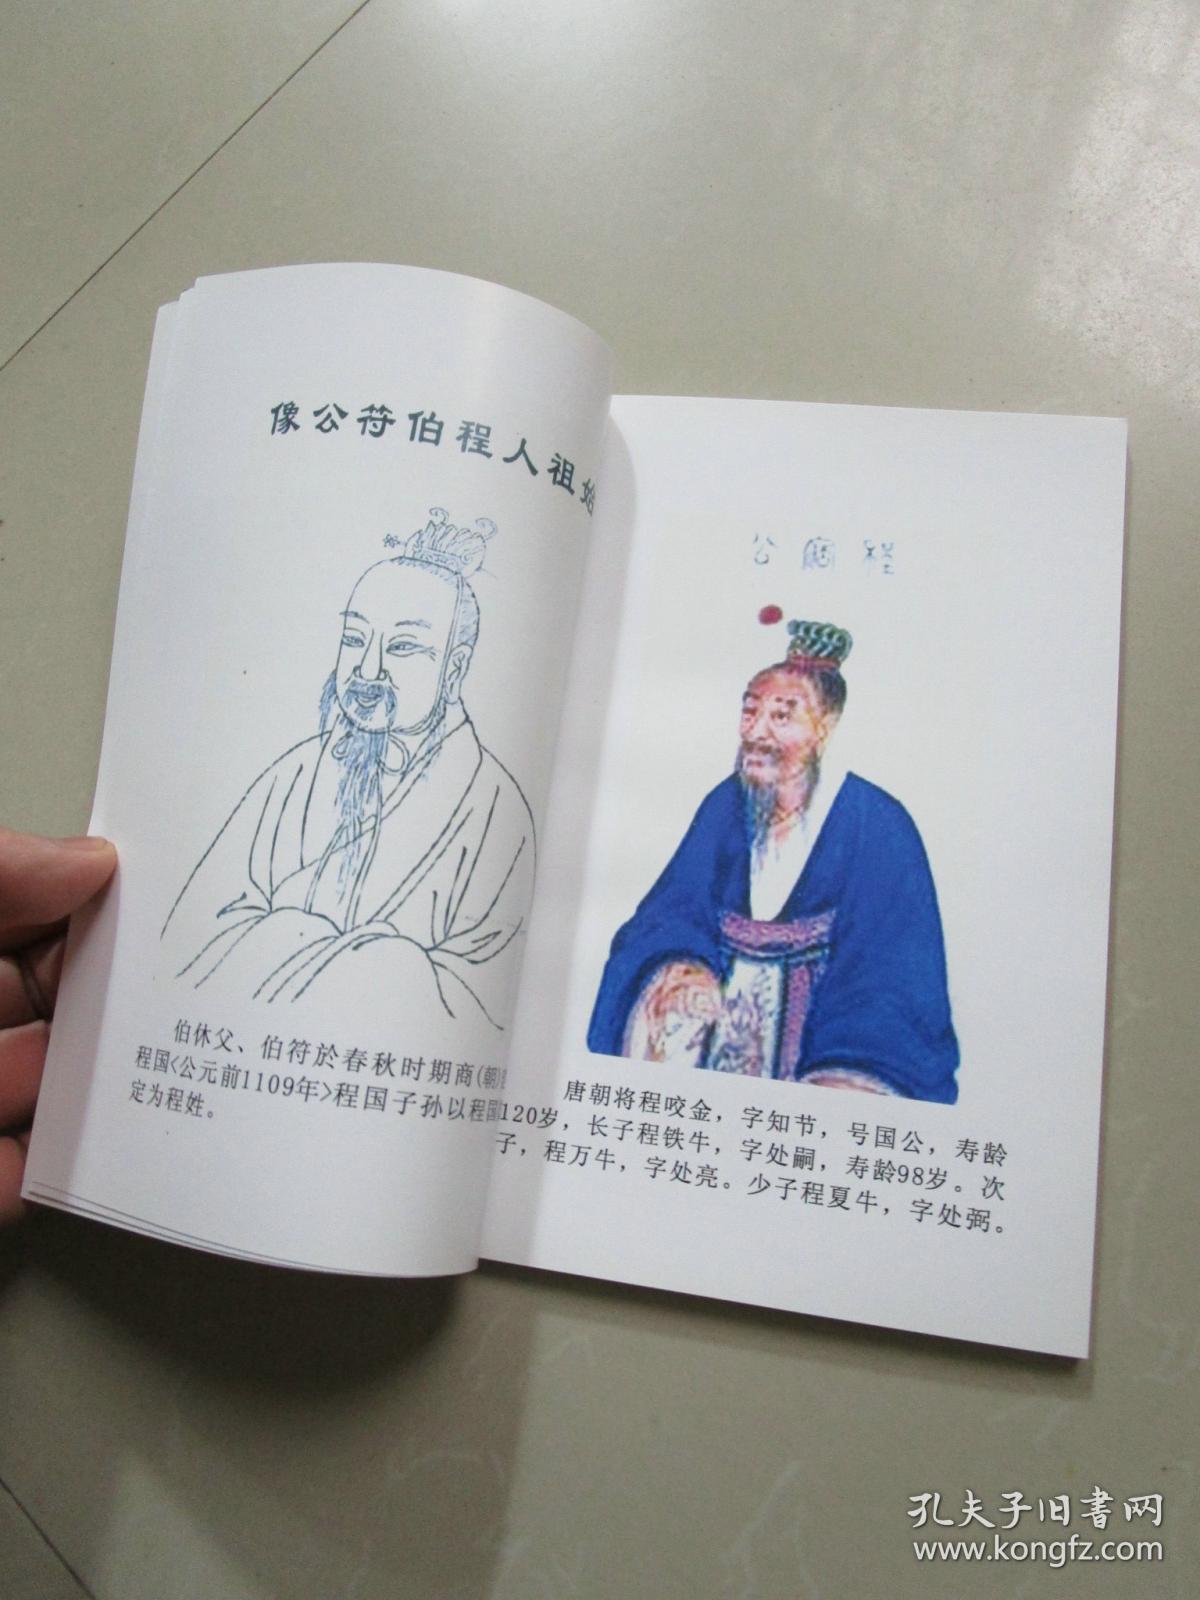 像公符伯程人祖始
伯休父、伯符於春秋时期商(朝)
程国<公元前1109年>程国子孙以程国
定为程姓。
公 程
唐朝将程咬金，字知节，号国公，寿龄
120岁，长子程铁牛，字处嗣，寿龄98岁。次
子，程万牛，字处亮。少子程夏牛，字处弼。
孔夫子旧书网
www.kongfz.com